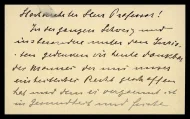 Hochverehrter Herr Professor!
In der ganzen Schweiz und
insbesondere unter den
gedenken wir heute dankbar
der Männer die uns unser
Recht geschaffen
hat und dem es vergönnt ist
in Gesundheit und